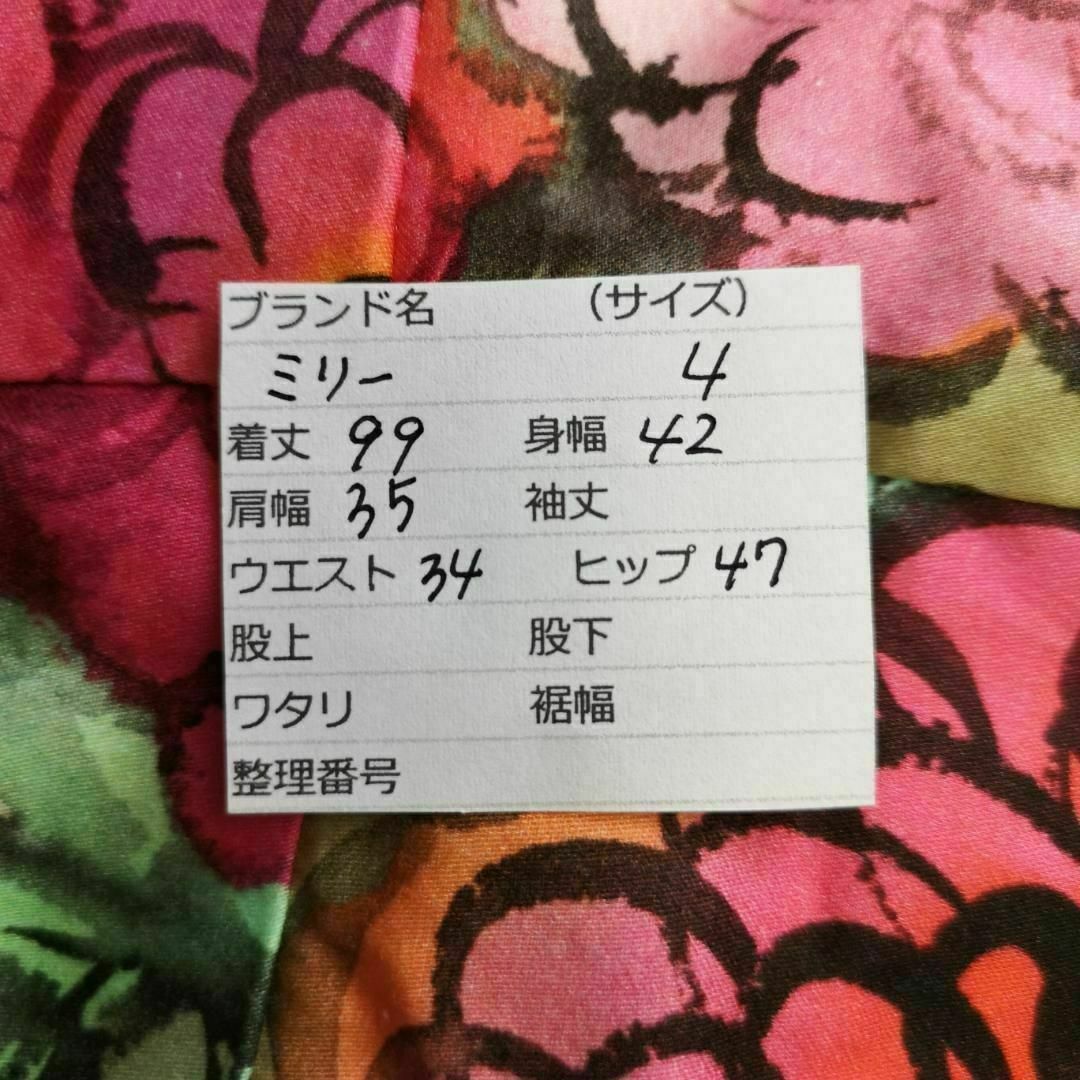 ブランド名 (サイズ)
ミリー 4
着丈 99 身幅 42
肩幅 35 袖丈
ウエスト 34 ヒップ 47
股上 股下
ワタリ 裾幅
整理番号